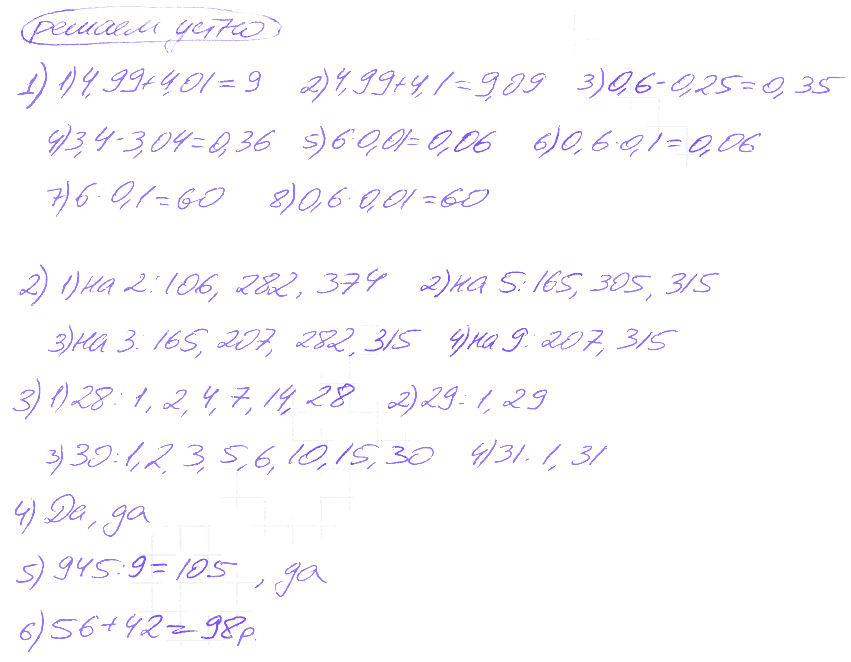 решаем устно
1) 1) 4,99+4,01=9 2) 4,99+4,1=9,09 3) 0,6-0,25=0,35
4) 3,4-3,04=0,36 5) 6·0,01=0,06 6) 0,6·0,1=0,06
7) 6·0,1=60 8) 0,6·0,01=60
2) 1) на 2: 106, 282, 374 2) на 5: 165, 305, 315
3) на 3: 165, 207, 282, 315 4) на 9: 207, 315
3) 1) 28: 1, 2, 4, 7, 14, 28 2) 29: 1, 29
3) 30: 1, 2, 3, 5, 6, 10, 15, 30 4) 31. 1, 31
4) Да, да
5) 945:9=105 , да
6) 56+42=98р.